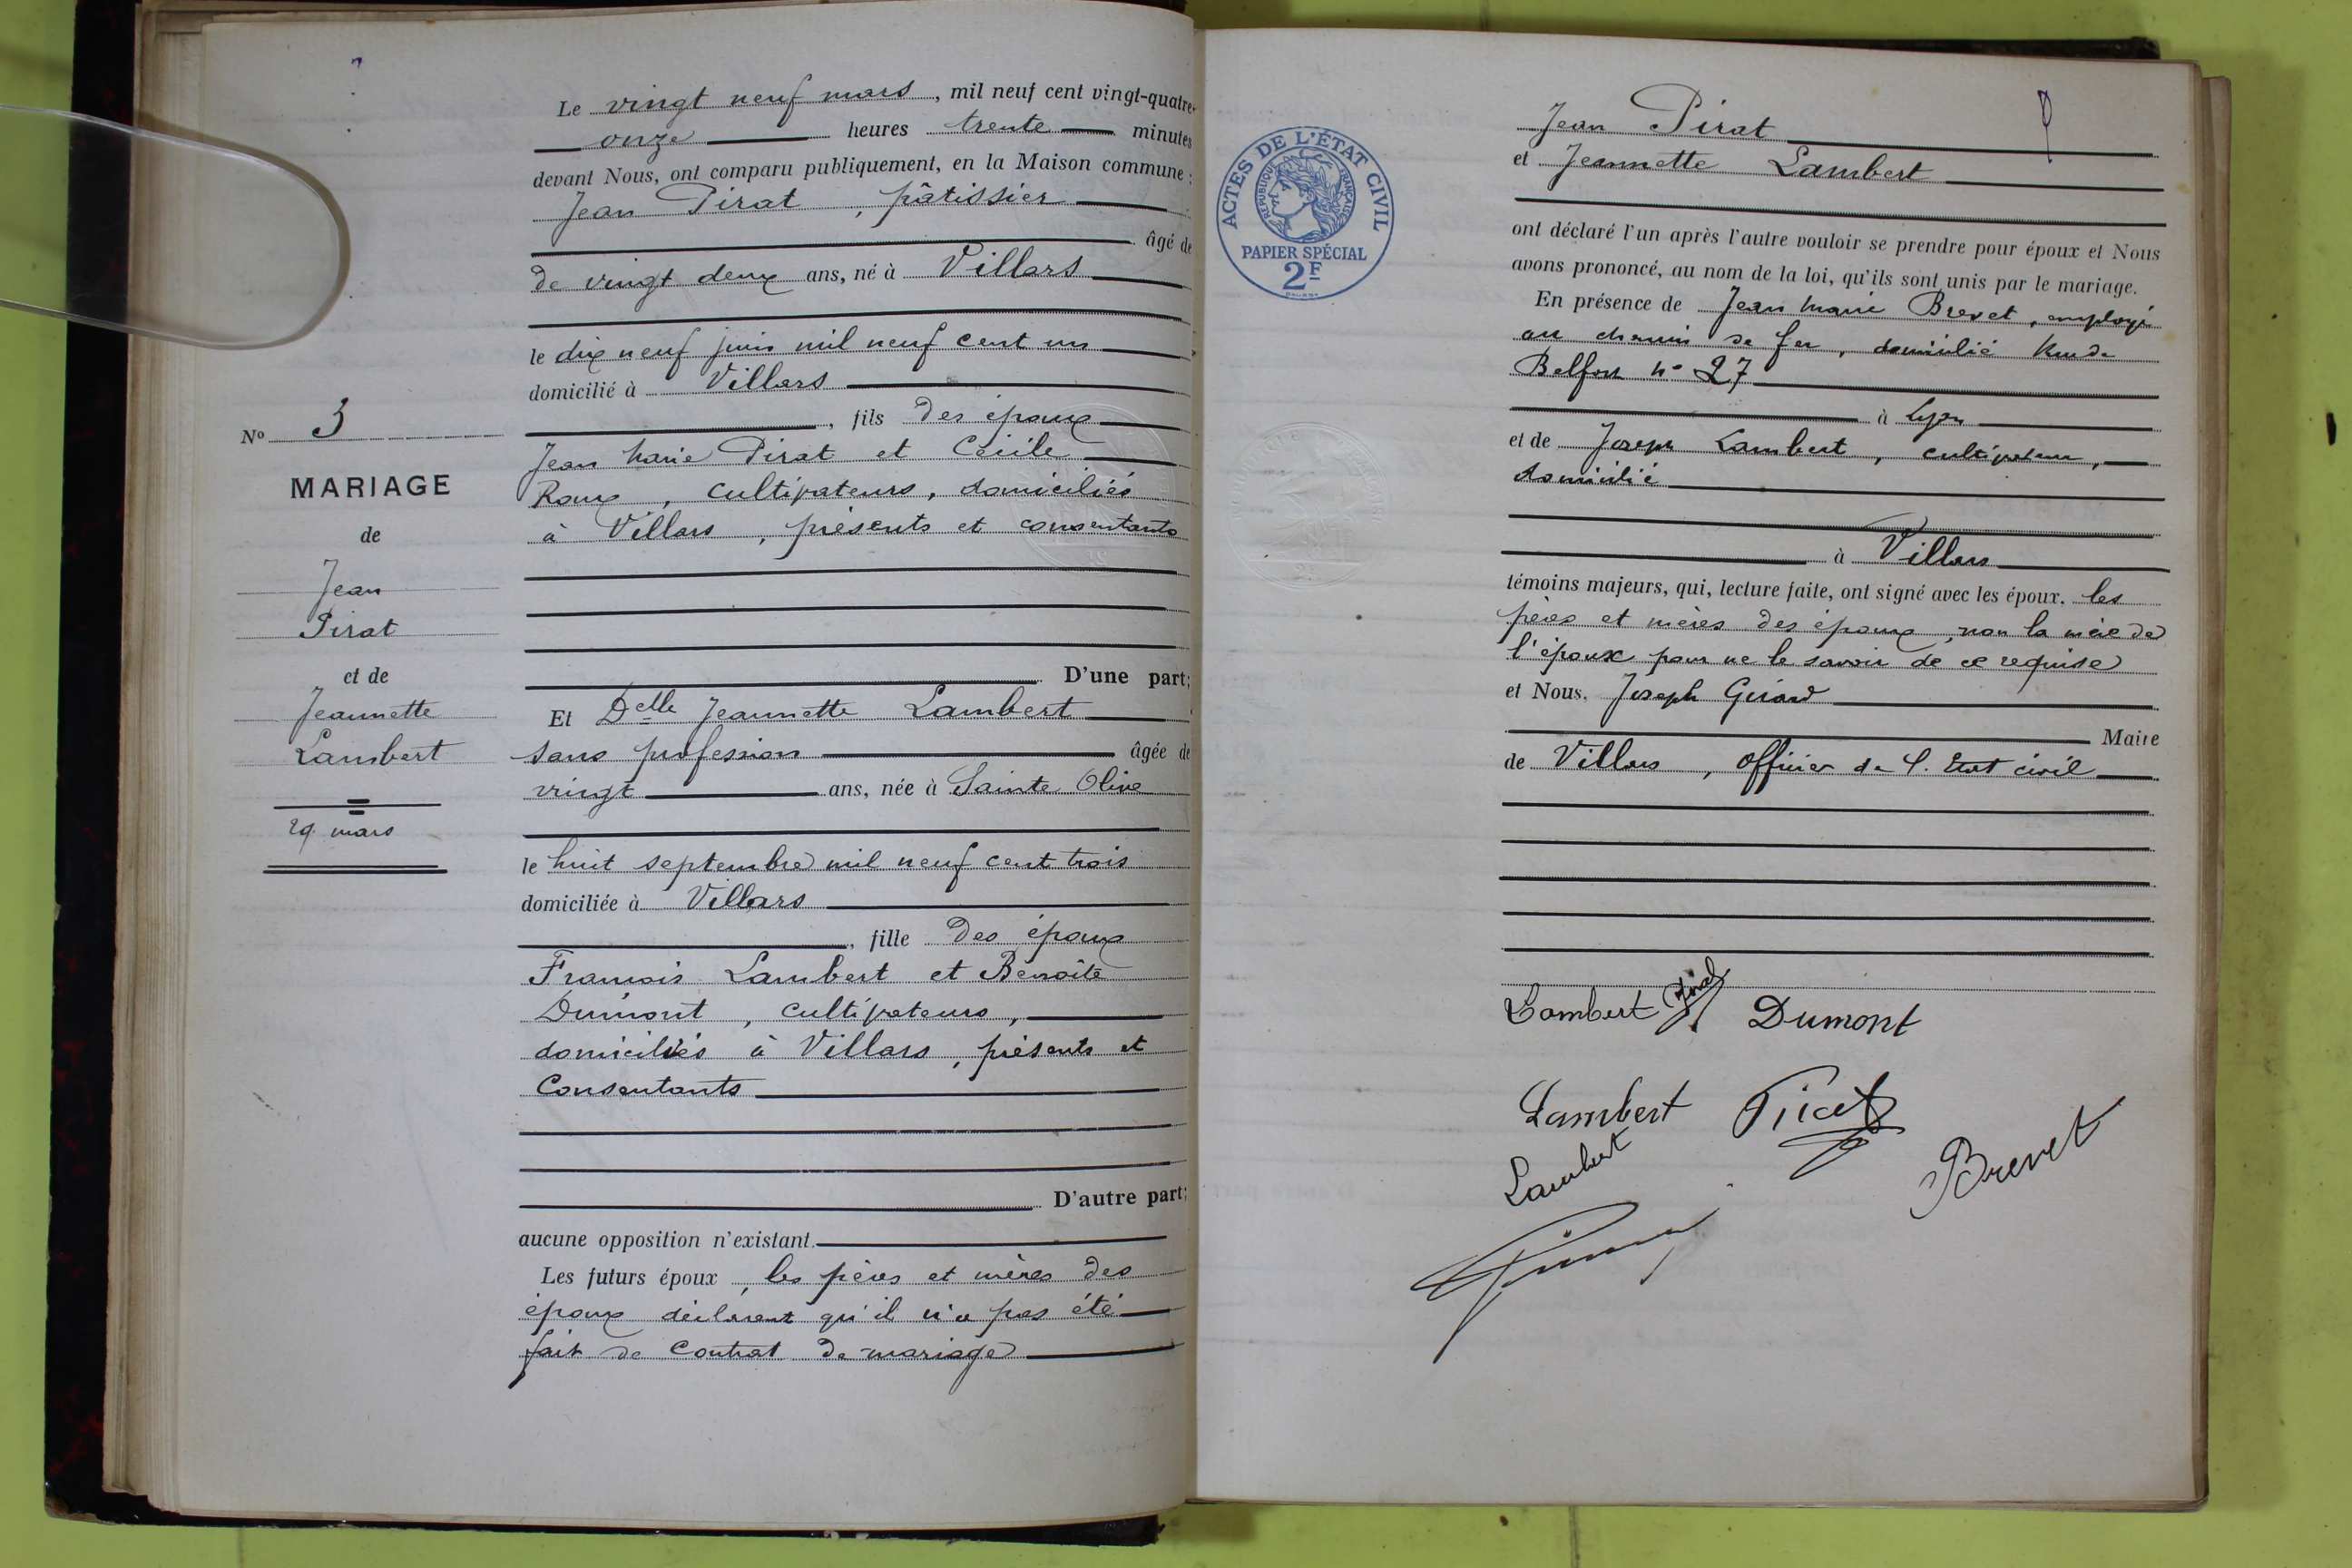 Le vingt neuf mars, mil neuf cent vingt-quatre,
onze heures trente minutes
devant Nous, ont comparu publiquement, en la Maison commune :
Jean Pirat, pâtissier
âgé de
de vingt deux ans, né à Villars
le dix neuf juin mil neuf cent un
domicilié à Villars
, fils des époux
Jean Marie Pirat et Cécile
Roux, cultivateurs, domiciliés
à Villars, présents et consentants
D'une part;
Et Delle Jeannette Lambert
sans profession âgée de
vingt ans, née à Sainte Olive
le huit septembre mil neuf cent trois
domiciliée à Villars
, fille des époux
François Lambert et Benoîte
Dumont, cultivateurs,
domiciliés à Villars, présents et
consentants
D'autre part;
aucune opposition n'existant.
Les futurs époux, les pères et mères des
époux déclarent qu'il n'a pas été
fait de contrat de mariage
No 3
MARIAGE
de
Jean
Pirat
et de
Jeannette
Lambert
29 mars
ACTES DE L'ÉTAT CIVIL
RÉPUBLIQUE FRANÇAISE
PAPIER SPÉCIAL
2F
Jean Pirat
et Jeannette Lambert
ont déclaré l'un après l'autre vouloir se prendre pour époux et Nous
avons prononcé, au nom de la loi, qu'ils sont unis par le mariage.
En présence de Jean Marie Brevet, employé
au chemin de fer, domicilié Rue de
Belfort no 27
à Lyon
et de Joseph Lambert, cultivateur,
domicilié
à Villars
témoins majeurs, qui, lecture faite, ont signé avec les époux. les
pères et mères des époux, non la mère de
l'époux pour ne le savoir de ce requise
et Nous, Joseph Girard
Maire
de Villars, officier de l'Etat civil
Lambert Dumont
Lambert Pirat
Lambert Brevet